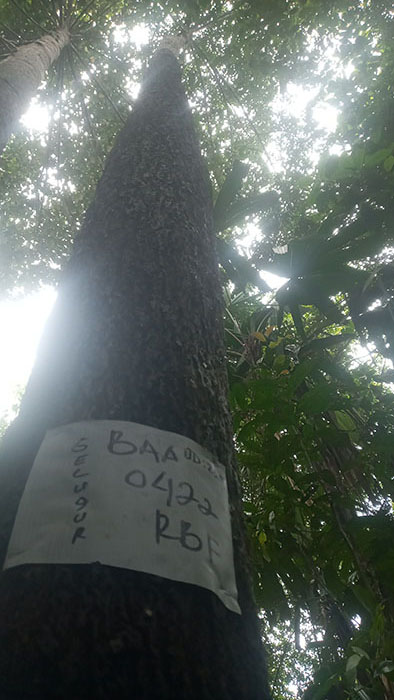 SELUQUR
BAA
0422
RBF